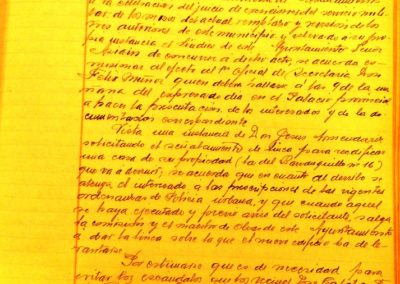 a la celebración del juicio de exenciones del servicio mili-
tar de los mozos del actual reemplazo y revisión de los
tres anteriores de este municipio y relevado a su pro-
pia instancia el Síndico de este Ayuntamiento Señor
de concurrir a dicho acto, se acuerda co-
misionar al efecto al 1er Oficial de Secretaría Don
Félix Muñoz quien deberá hallarse a las 9 de la ma-
ñana del expresado día en el Palacio provincial
a hacer la presentación de los interesados y de la do-
cumentación correspondiente.
Vista una instancia de Don Jesús
solicitando el señalamiento de línea para reedificar
una casa de su propiedad (la del Barranquillo nº 16)
que va a derruir, se acuerda que en cuanto al derribo se
atenga el interesado a las prescripciones de las vigentes
ordenanzas de Policía urbana, y que cuando aquel
se haya ejecutado y previo aviso del solicitante, salga
la comisión y el maestro de obras de este Ayuntamiento
a dar la línea sobre la que el nuevo edificio ha de le-
vantarse.
Por estimarse que es de necesidad para
evitar los escándalos